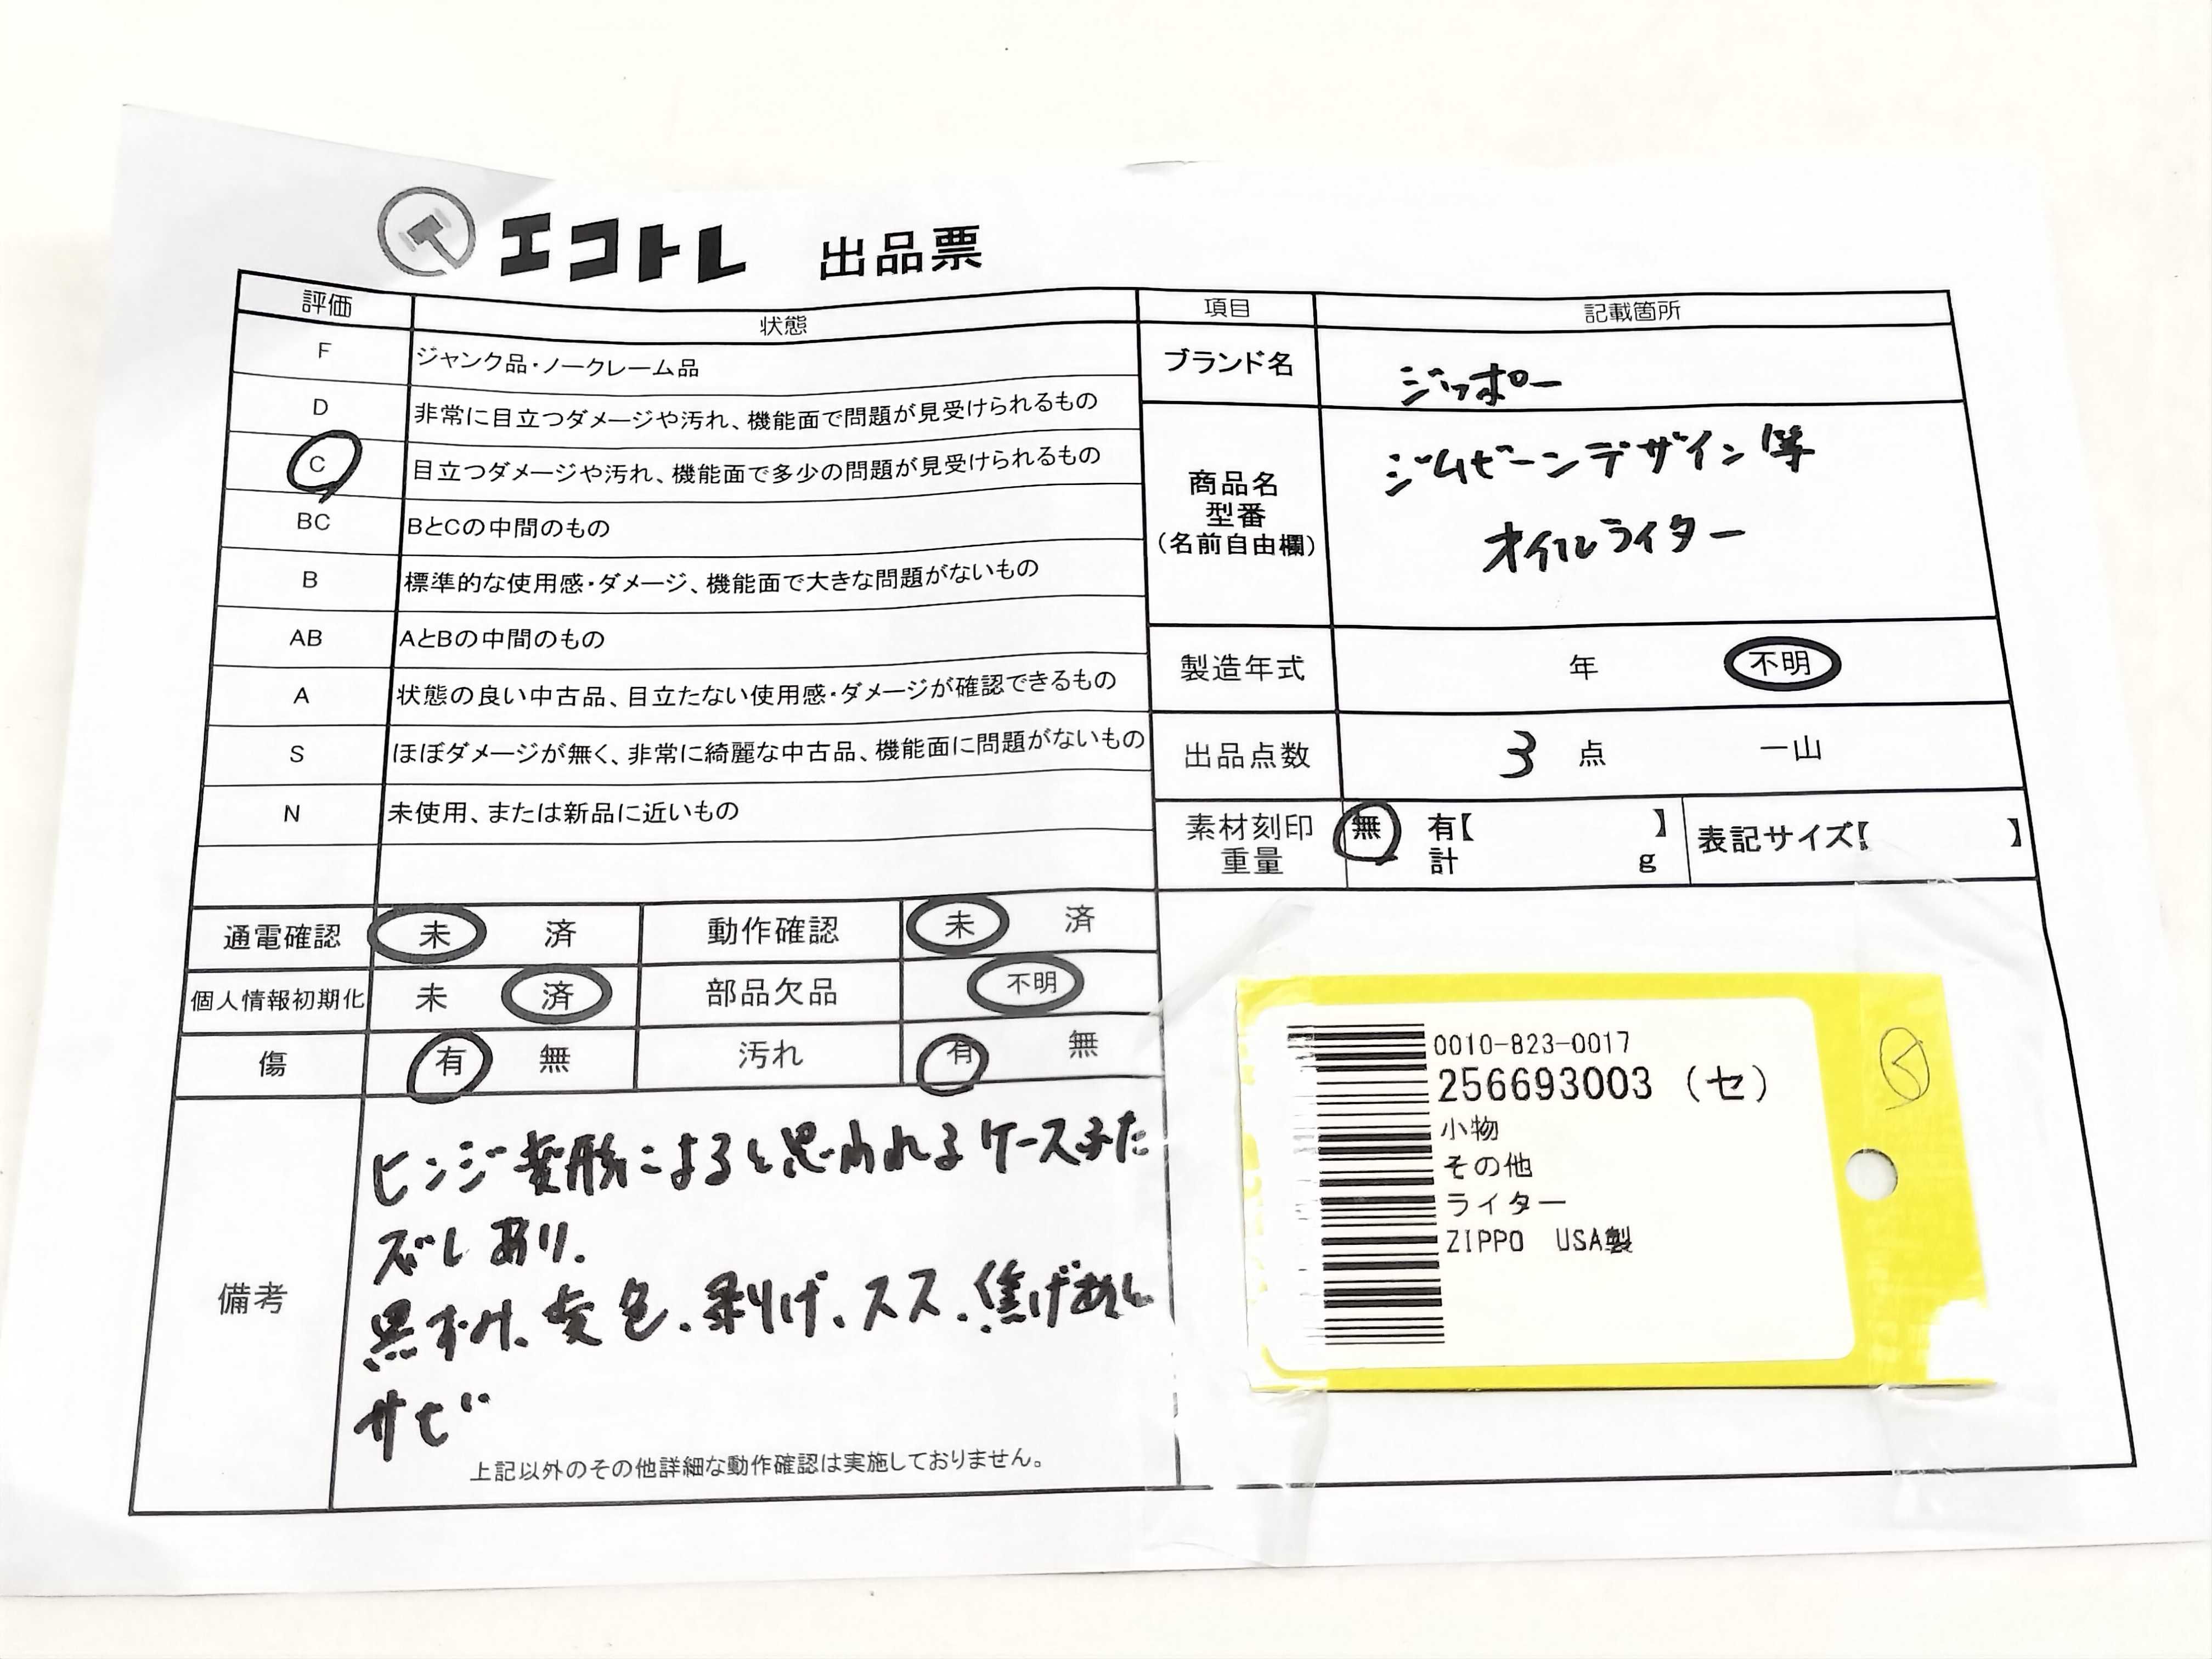 エコトレ 出品票
評価 状態
F ジャンク品・ノークレーム品
D 非常に目立つダメージや汚れ、機能面で問題が見受けられるもの
C 目立つダメージや汚れ、機能面で多少の問題が見受けられるもの
BC BとCの中間のもの
B 標準的な使用感・ダメージ、機能面で大きな問題がないもの
AB AとBの中間のもの
A 状態の良い中古品、目立たない使用感・ダメージが確認できるもの
S ほぼダメージが無く、非常に綺麗な中古品、機能面に問題がないもの
N 未使用、または新品に近いもの
項目 記載箇所
ブランド名 ジッポー
商品名
型番
(名前自由欄)
ジムビーンデザイン 等
オイルライター
製造年式 年 不明
出品点数 3 点 一山
素材刻印 無 有【 】
重量 計 g
表記サイズ【 】
通電確認 未 済 動作確認 未 済
個人情報初期化 未 済 部品欠品 不明
傷 有 無 汚れ 有 無
備考
ヒンジ変形によると思われるケースふた
ズレあり.
黒ずみ、変色、剥げ、スス、焦げあと
サビ
上記以外のその他詳細な動作確認は実施しておりません。
0010-823-0017
256693003 (セ)
小物
その他
ライター
ZIPPO USA製